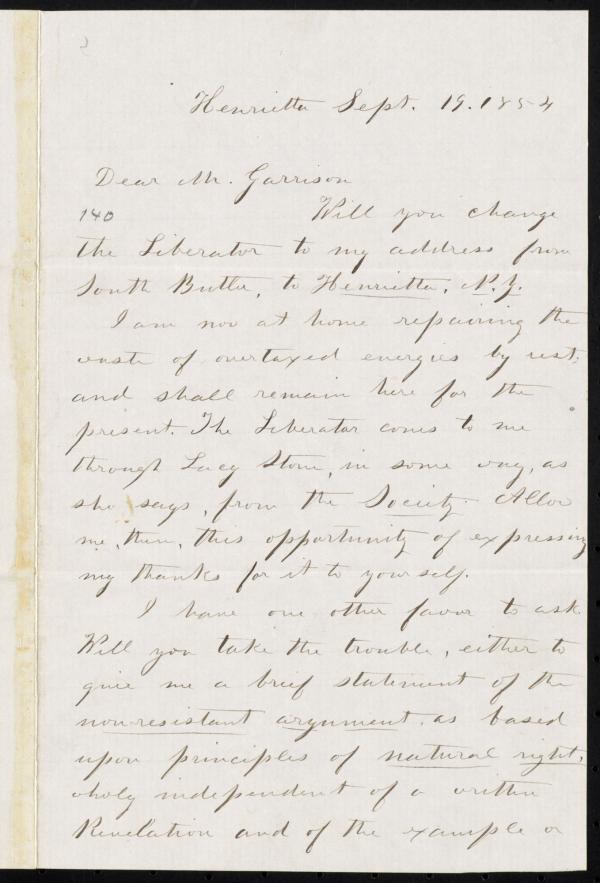 Henrietta Sept. 19. 1854
Dear Mr. Garrison
140 Will you change
the Liberator to my address from
South Butler, to Henrietta, N.Y.
I am now at home repairing the
waste of overtaxed energies by rest,
and shall remain here for the
present. The Liberator comes to me
through Lucy Stone, in some way, as
she says, from the Society. Allow
me, then, this opportunity of expressing
my thanks for it to yourself.
I have one other favor to ask
Will you take the trouble, either to
give me a brief statement of the
non-resistant argument, as based
upon principles of natural right,
wholy independent of a written
Revelation and of the example or